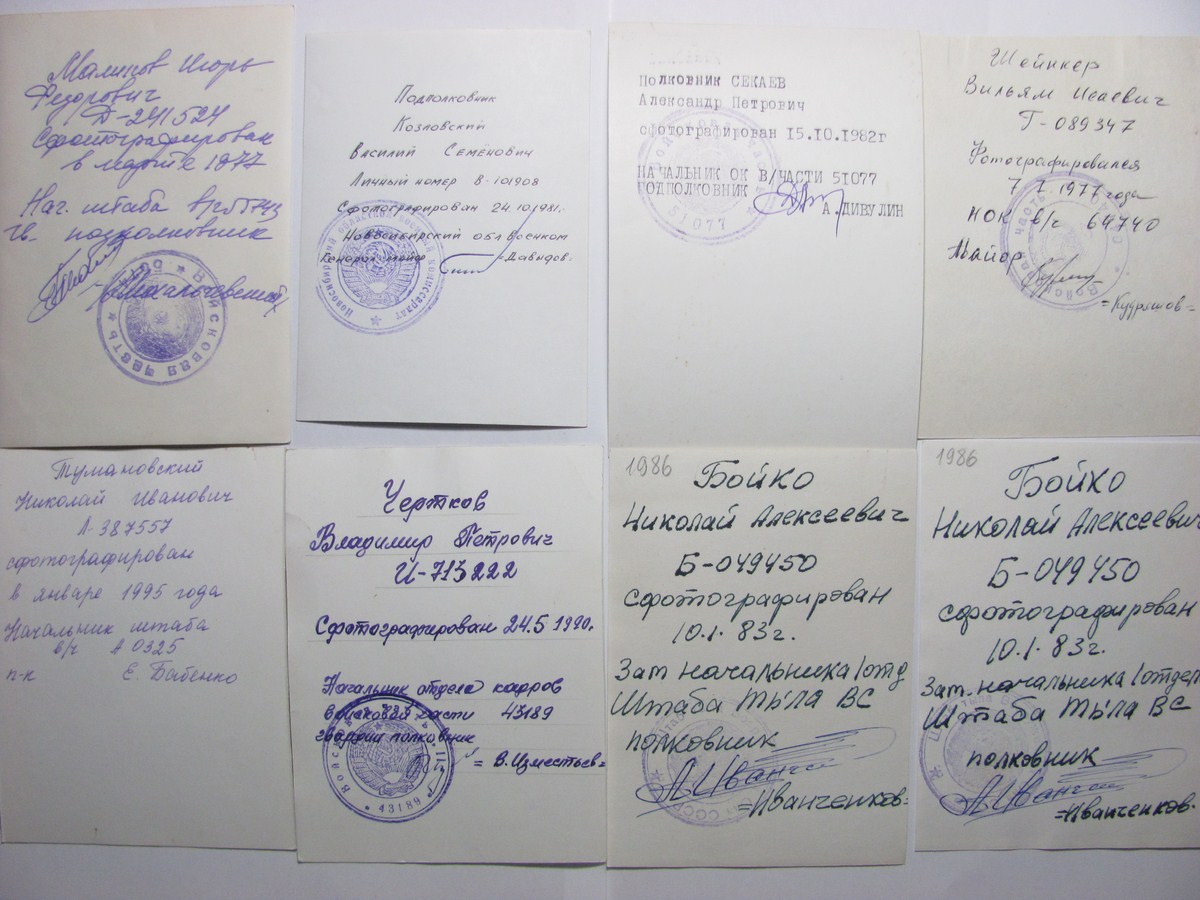 Малинов Игорь
Федорович
Д-241524
Сфотографирован
в марте 1977
Нач. штаба в/ч
гв. подполковник
ВОЙСКОВАЯ ЧАСТЬ
Подполковник
Козловский
Василий Семёнович
Личный номер 8-101908
Сфотографирован 24.10.1981г.
Новосибирский облвоенком
Генерал-майор =Давыдов.
Новосибирский областной военный комиссариат
Полковник СЕКАЕВ
Александр Петрович
сфотографирован 15.10.1982г
НАЧАЛЬНИК ОК В/ЧАСТИ 51077
ПОДПОЛКОВНИК
А.ДИВУЛИН
51077
Шейнкер
Вильям Исаевич
Г-089347
Фотографировался
7.7.1977 года
НОК в/ч 64740
Майор
=Кудряшов=
Тумановский
Николай Иванович
Л-387557
сфотографирован
в январе 1995 года
Начальник штаба
в/ч А 0325
п-к Е. Бабенко
Чертков
Владимир Петрович
И-713222
Сфотографирован 24.5 1990г.
Начальник отдела кадров
войсковой части 43189
гвардии полковник
= В.Изместьев=
* 43189 *
1986
Бойко
Николай Алексеевич
Б-049450
сфотографирован
10.1.83г.
Зам начальника 1отд
Штаба Тыла ВС
полковник
=Иванченков=
1986
Бойко
Николай Алексеевич
Б-049450
сфотографирован
10.1.83г.
Зам. начальника 1отдел
Штаба Тыла ВС
полковник
=Иванченков=